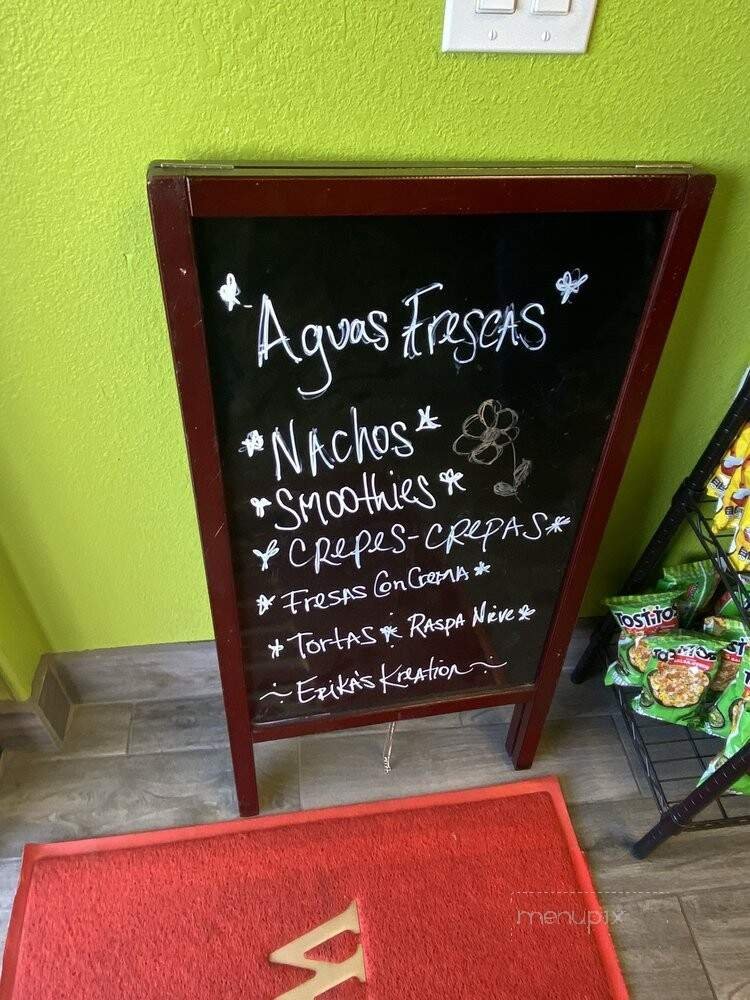 * Aguas Frescas *
* Nachos *
* Smoothies *
* Crepes-Crepas *
* Fresas Con Crema *
* Tortas * Raspa Nieve *
~ Erika's Kreation ~
TOSTITOS
TOSTITOS
menupix